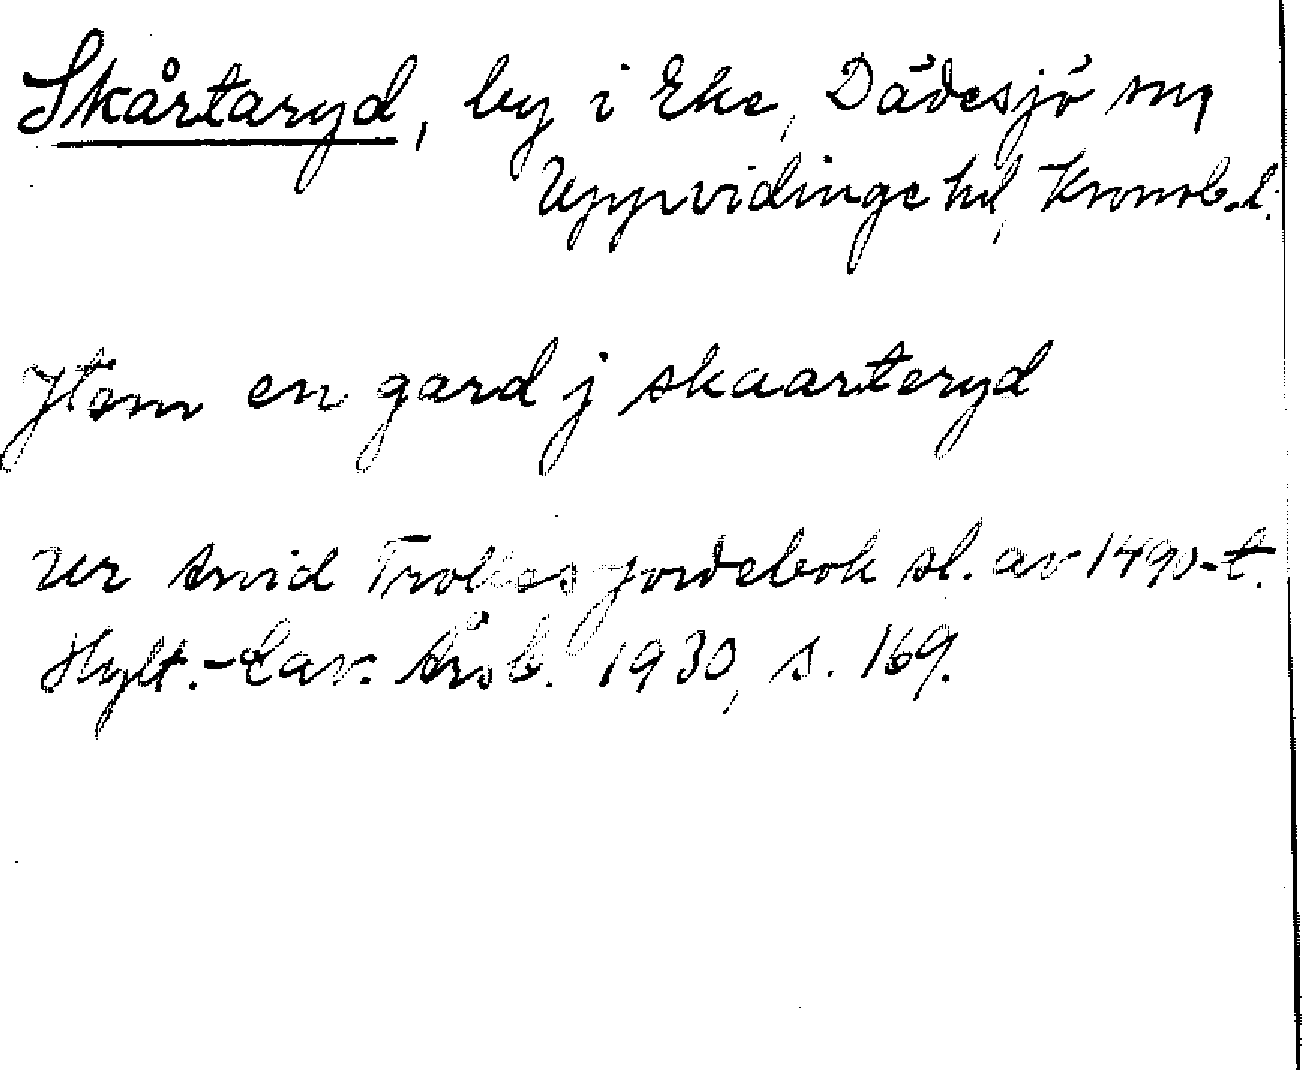 Skårtaryd, by i Eke, Dädesjö sn,
Uppvidinge hd, Kronob. l.
Jtem en gard j skaarteryd
Ur Arvid Trolles jordebok sl. av 1490-t.
Hylt.-Cav. Årsb. 1930, s. 169.